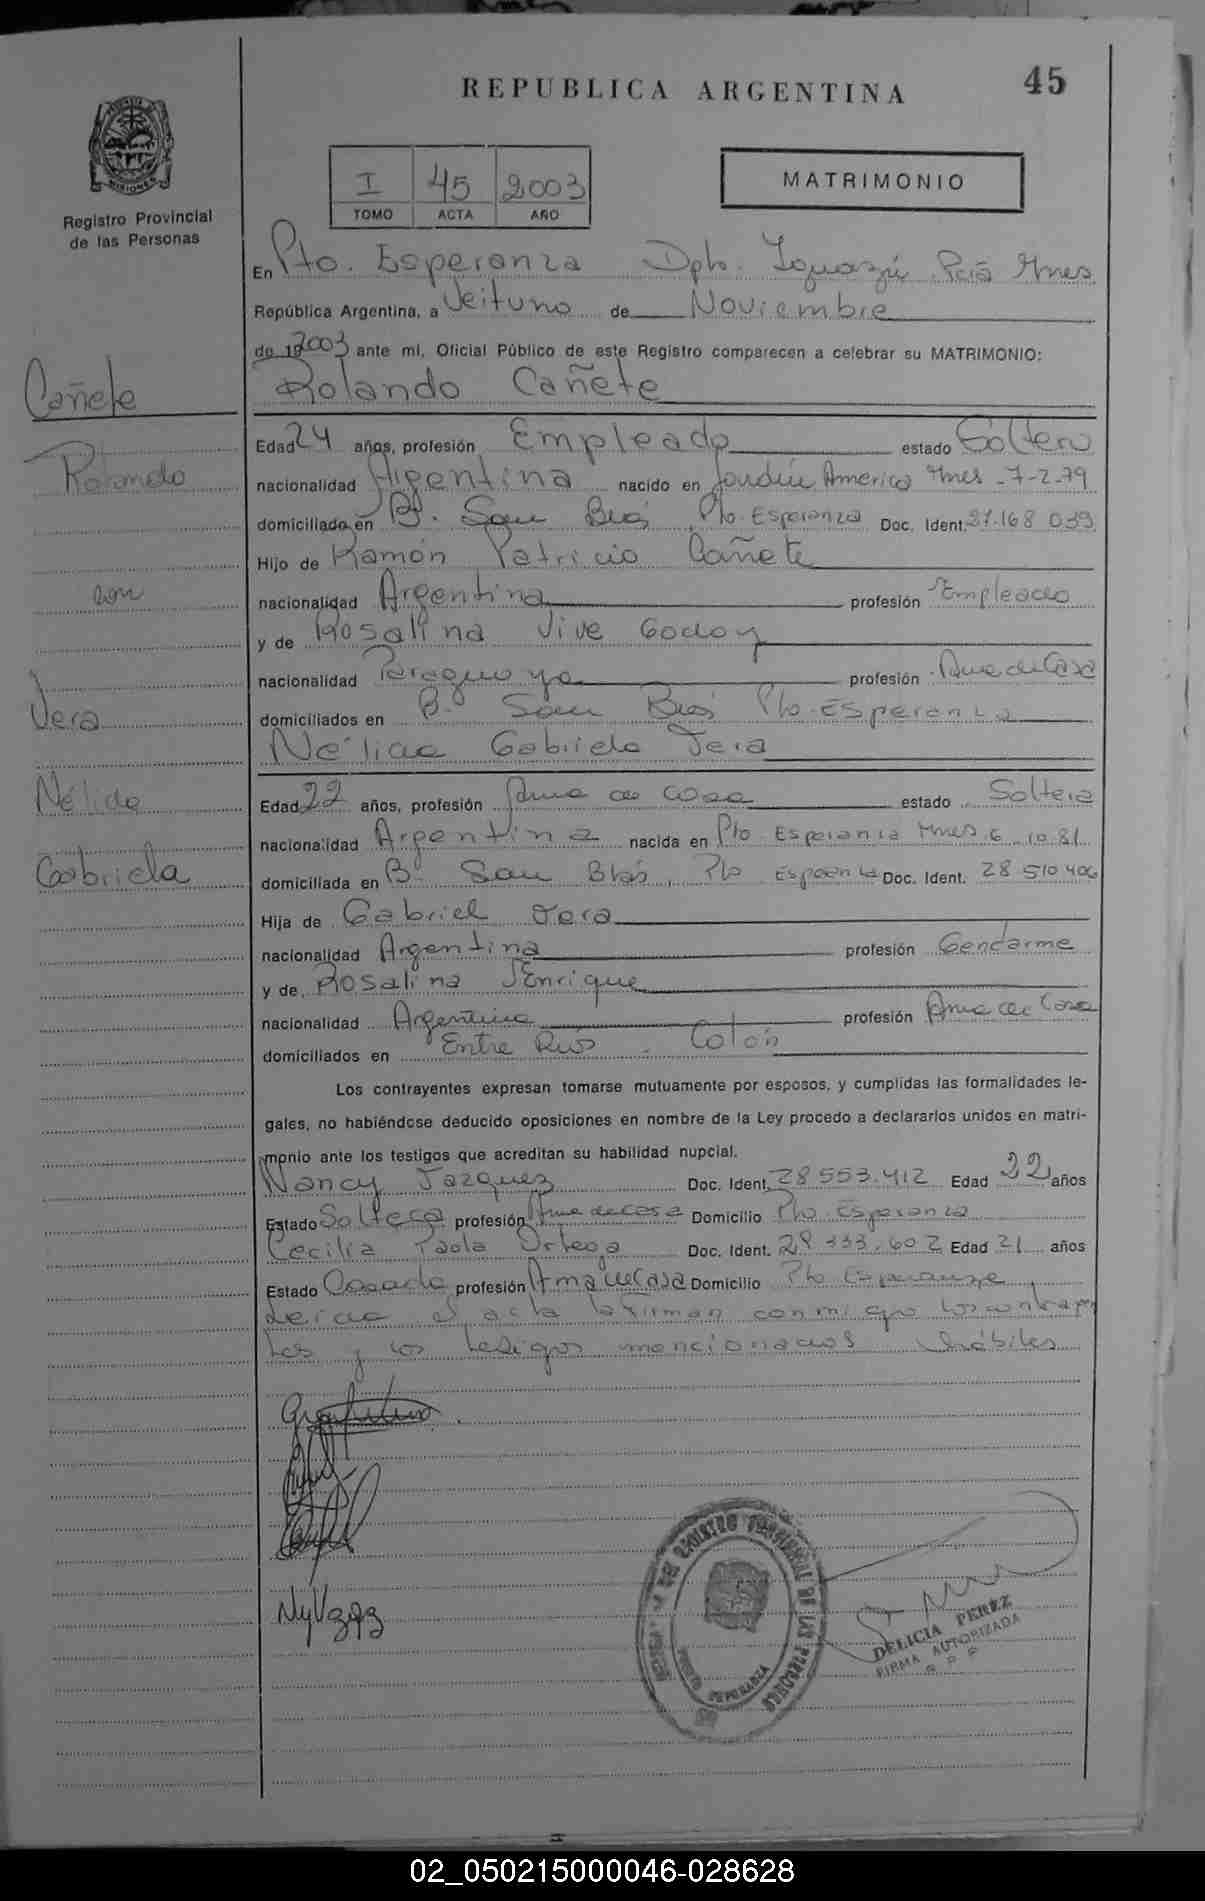 REPUBLICA ARGENTINA
45
MISIONES
Registro Provincial
de las Personas
I 45 2003
TOMO ACTA AÑO
MATRIMONIO
En Pto. Esperanza Dpto. Iguazú Pcia Mnes
República Argentina, a Veituno de Noviembre
de 19 2003 ante mi, Oficial Público de este Registro comparecen a celebrar su MATRIMONIO:
Rolando Cañete
Cañete
Rolando
con
Vera
Nélida
Gabriela
Edad 24 años, profesión Empleado estado Soltero
nacionalidad Argentina nacido en Jardín America Mnes - 7-2-79
domiciliado en Bº San Blás Pto. Esperanza Doc. Ident. 27.168 039
Hijo de Ramón Patricio Cañete
nacionalidad Argentina profesión Empleado
y de Rosalina Vive Godoy
nacionalidad Paraguaya profesión Ama de Casa
domiciliados en Bº San Blás Pto. Esperanza
Nélida Gabriela Vera
Edad 22 años, profesión Ama de Casa estado Soltera
nacionalidad Argentina nacida en Pto Esperanza Mnes 6.10.81
domiciliada en Bº San Blás, Pto Esperanza Doc. Ident. 28 510 406
Hija de Gabriel Vera
nacionalidad Argentina profesión Gendarme
y de Rosalina Enrique
nacionalidad Argentina profesión Ama de Casa
domiciliados en Entre Rios - Colón
Los contrayentes expresan tomarse mutuamente por esposos, y cumplidas las formalidades le-
gales, no habiéndose deducido oposiciones en nombre de la Ley procedo a declararlos unidos en matri-
monio ante los testigos que acreditan su habilidad nupcial.
Nancy Vazquez Doc. Ident. 28 553.412 Edad 22 años
Estado Soltera profesión Ama de casa Domicilio Pto. Esperanza
Cecilia Paola Ortega Doc. Ident. 29 333.602 Edad 21 años
Estado Casada profesión Ama de Casa Domicilio Pto Esperanza
Leida el acta la firman conmigo los contrayen
tes y los testigos mencionados hábiles
DELICIA PEREZ
FIRMA AUTORIZADA
R P P
02_050215000046-028628